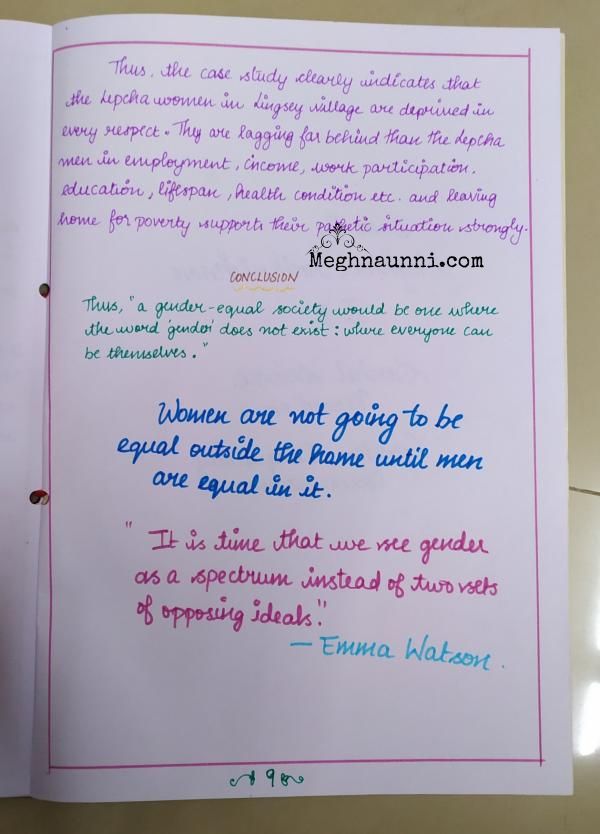 Thus, the case study clearly indicates that
the Lepcha women in Lingsey village are deprived in
every respect. They are lagging far behind than the Lepcha
men in employment, income, work participation,
education, lifespan, health condition etc. and leaving
home for poverty supports their pathetic situation strongly.
Meghnaunni.com
CONCLUSION
Thus, "a gender-equal society would be one where
the word 'gender' does not exist: where everyone can
be themselves."
Women are not going to be
equal outside the home until men
are equal in it.
"It is time that we see gender
as a spectrum instead of two sets
of opposing ideals."
— Emma Watson.
9